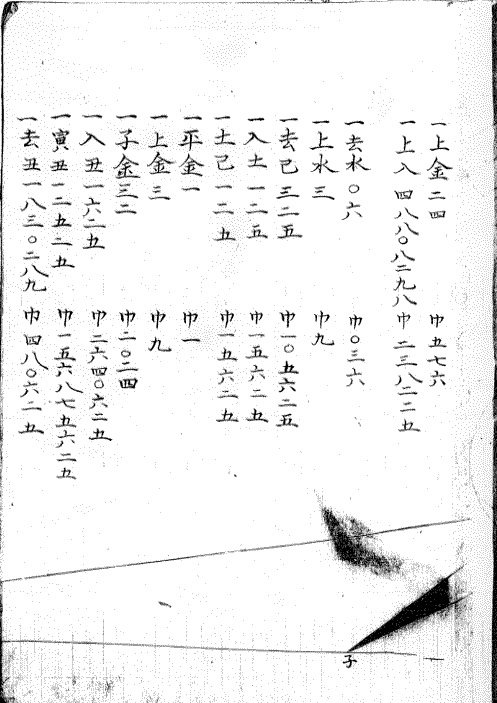 一上金二四　巾五七六
一上入四八八〇八二九八巾二三八二二五
一去水〇六　巾〇三六
一上水三　巾九
一去己三二五　巾一〇五六二五
一入土一二五　巾一五六二五
一土己一二五　巾一五六二五
一平金一　巾一
一上金三　巾九
一子金三二　巾二〇二四
一入丑一六二五　巾二六四〇六二五
一寅丑一二五二五　巾一五六八七五六二五
一去丑一八三〇二八九　巾四八〇六二五
子